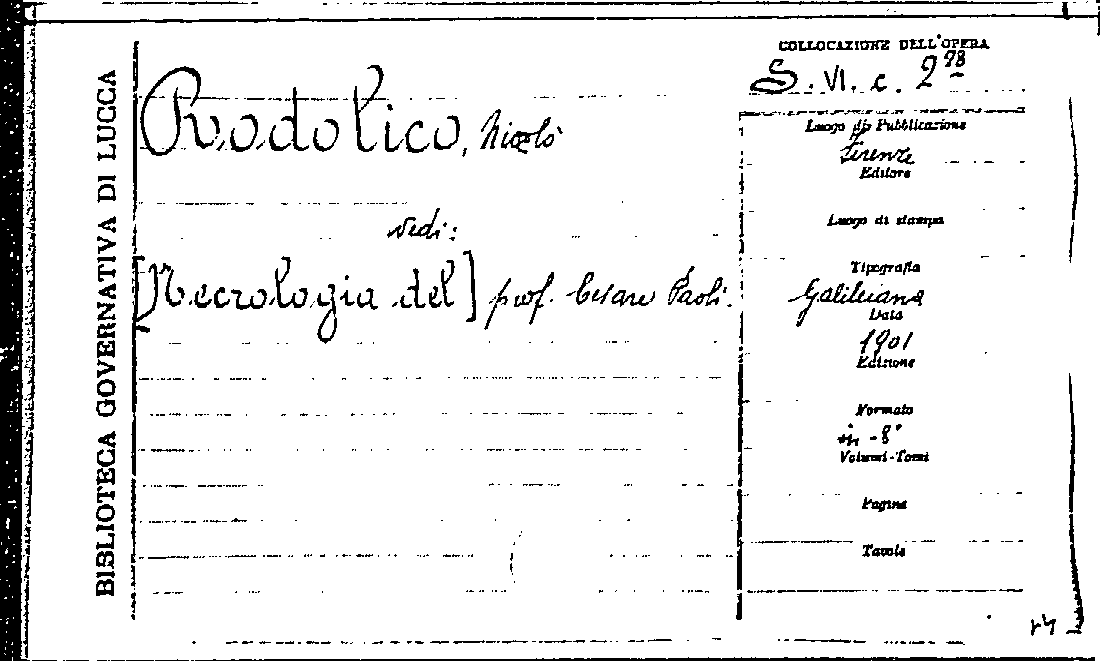 BIBLIOTECA GOVERNATIVA DI LUCCA
Rodolico, Nicolò
vedi:
[Necrologia del] prof. Cesare Paoli.
COLLOCAZIONE DELL'OPERA
S. VI. c. 298
Luogo di Pubblicazione
Firenze
Editore
Luogo di stampa
Tipografia
Galileiana
Data
1901
Edizione
Formato
in-8°
Volumi-Tomi
Pagine
Tavole